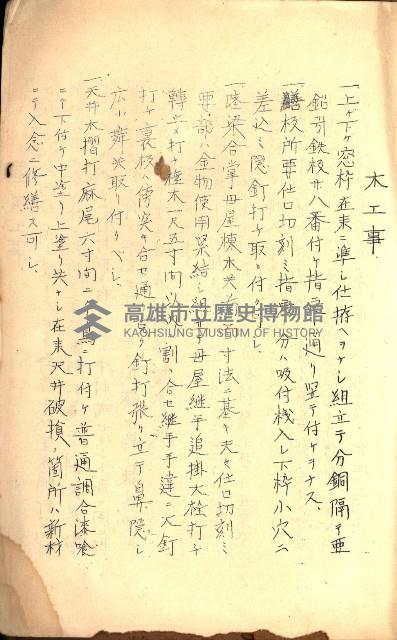 木工事
一上ゲ下ゲ窓枠在来ニ準シ仕拵ヘヲナシ組立テ分銅隔テ亜
鉛引鉄板廿八番付ケ指示通リ竪テ付ケヲナス
一膳板所要仕口切刻ミ指示分ハ吸付桟入レ下枠小穴ニ
差込ミ隠釘打チ取リ付ケベシ
一陸梁合掌母屋棟木共在前寸法ニ基キ夫々仕口切刻ミ
要部ハ金物使用緊結シ組立母屋継手追掛大栓打チ
転立メ打チ種木一尺五寸間以割リ合セ継手手違ニ大釘
打チ裏板ハ傍突キ合セ通シ釘打張リ立テ鼻隠シ
広小舞共取リ付ケベシ
一天井木摺打麻尾六寸間ニ千鳥ニ打付ケ普通調合漆喰
ニテ下付ケ中塗リ上塗リ共ナシ在来天井破損ノ箇所ハ新材
ニテ入念ニ修繕ス可シ
高雄市立歷史博物館
KAOHSIUNG MUSEUM OF HISTORY